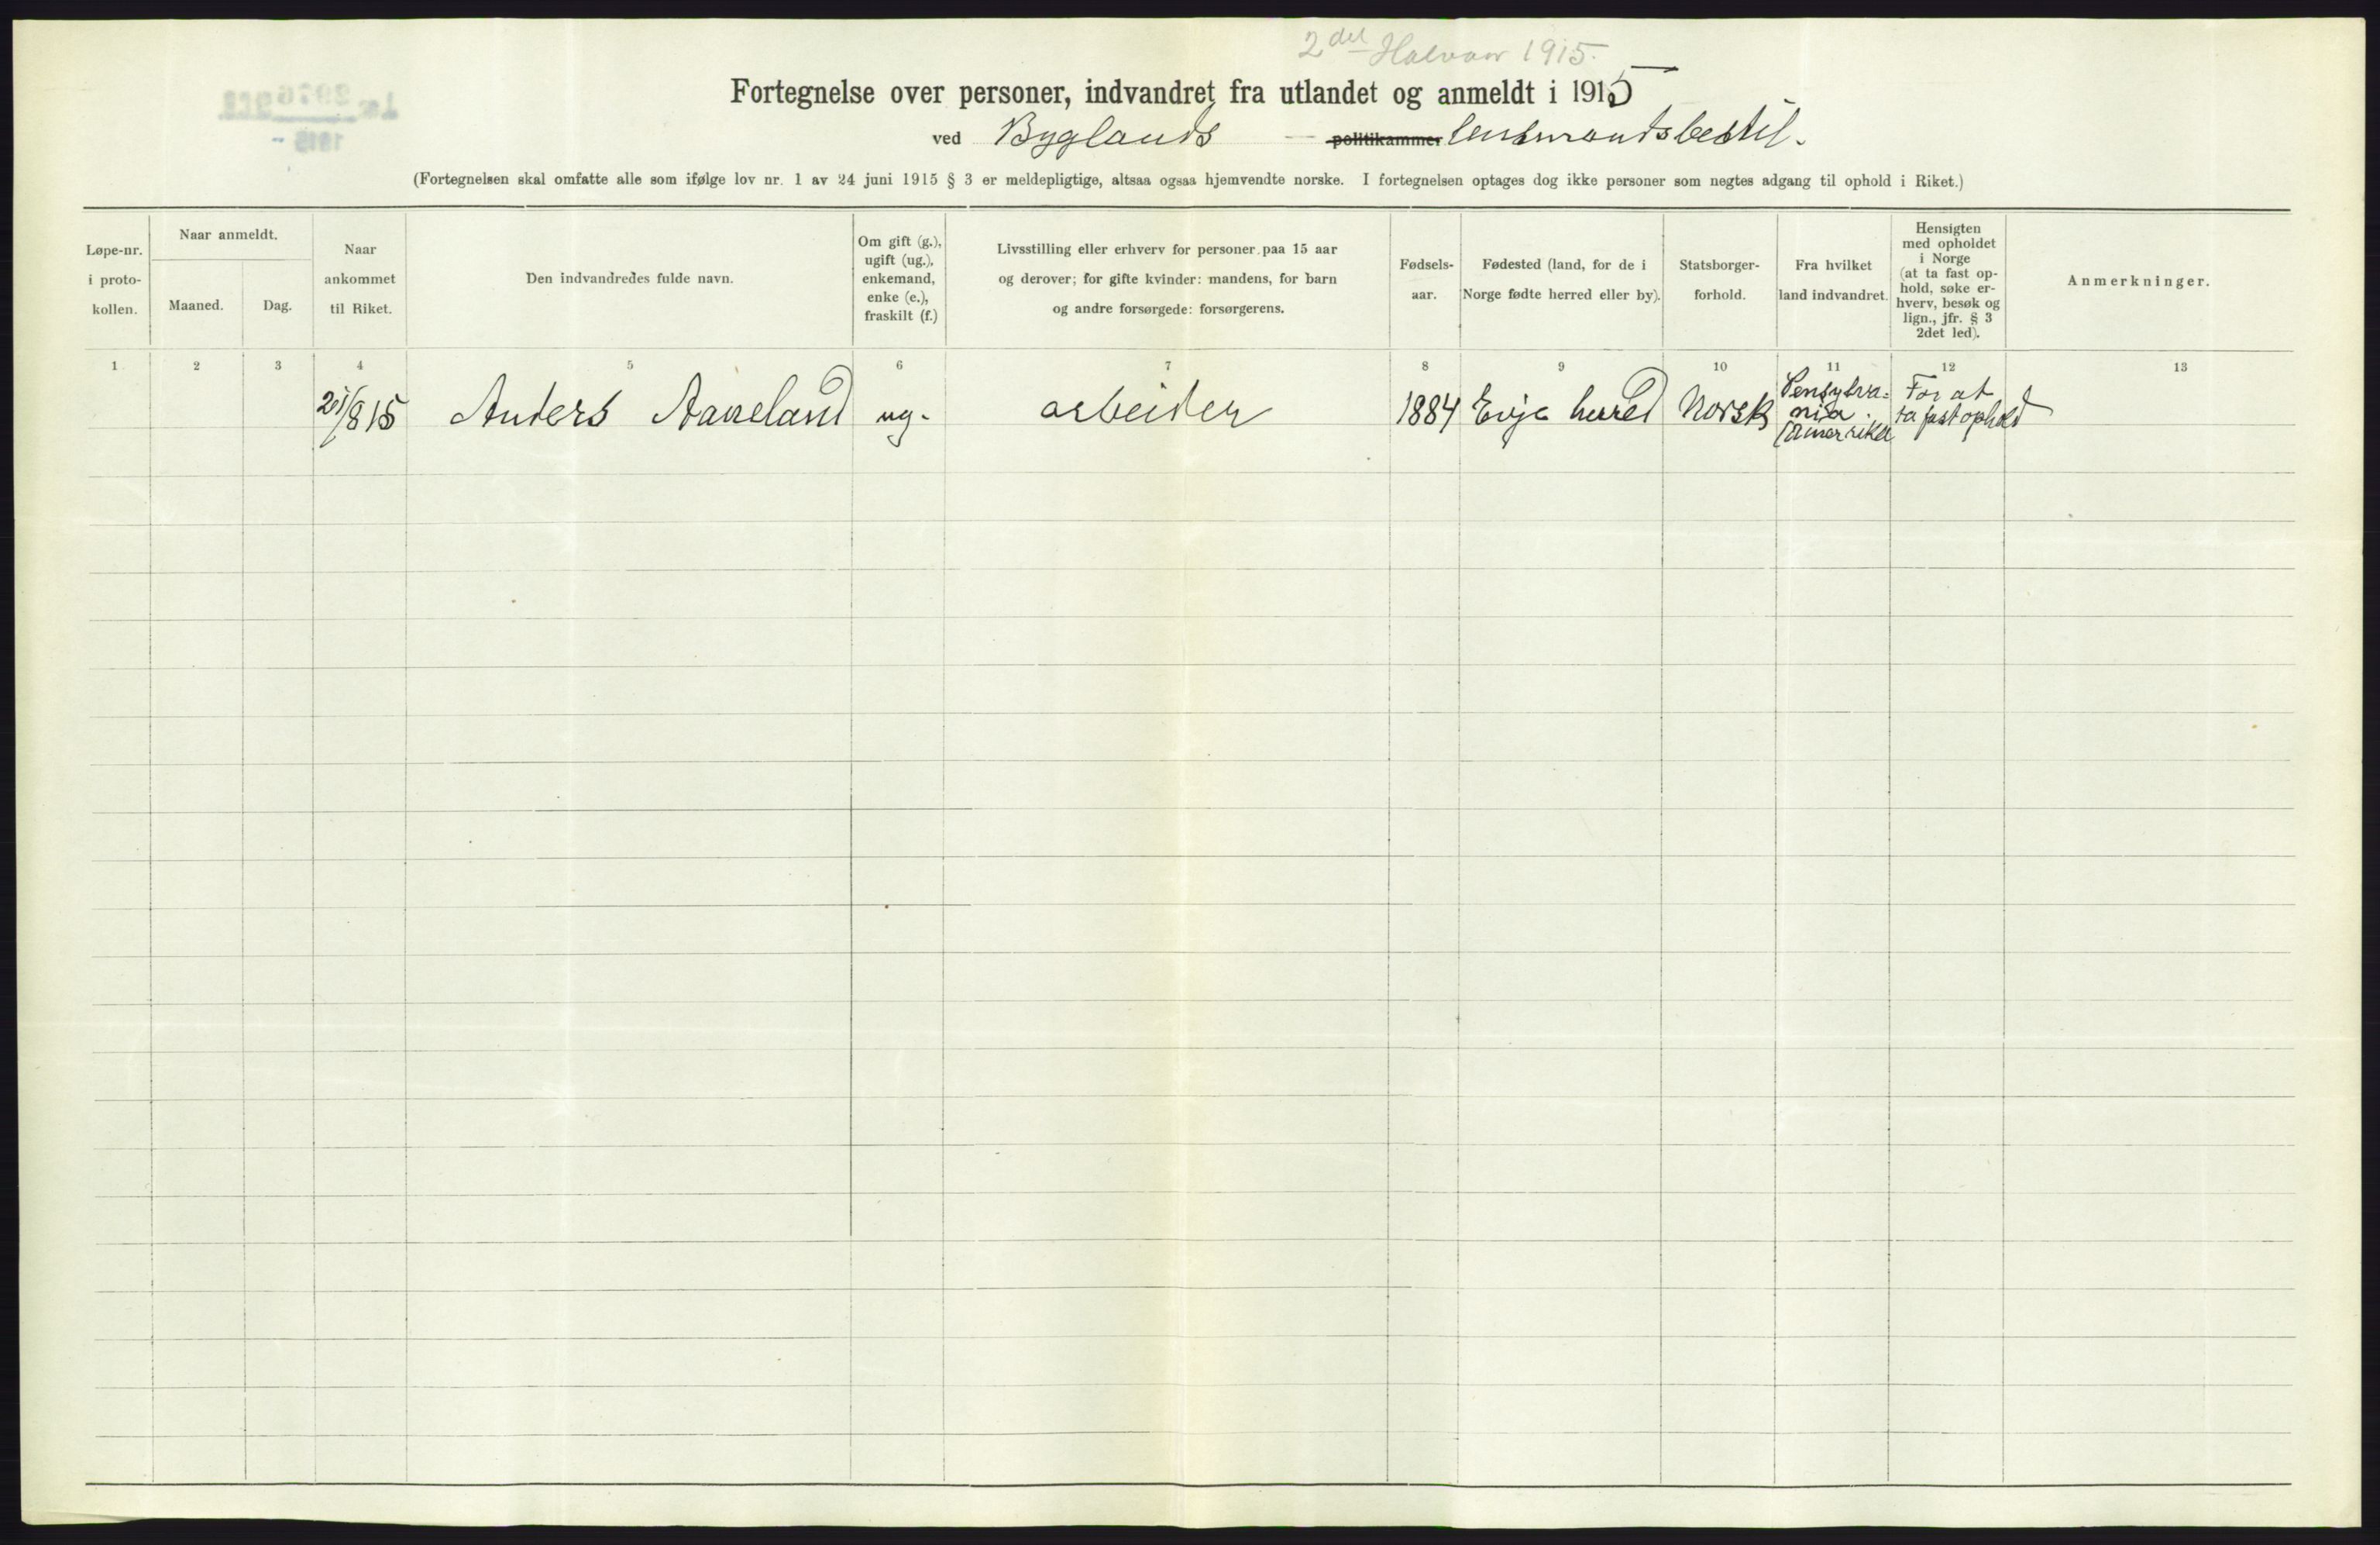 2det Halvaar 1915.
Fortegnelse over personer, indvandret fra utlandet og anmeldt i 1915
ved Byglands politikammer lensmandsbestil.
(Fortegnelsen skal omfatte alle som ifølge lov nr. 1 av 24 juni 1915 § 3 er meldepligtige, altsaa ogsaa hjemvendte norske. I fortegnelsen optages dog ikke personer som negtes adgang til ophold i Riket.)
Løpe-nr.
i proto-
kollen.
Naar anmeldt.
Maaned.
Dag.
Naar
ankommet
til Riket.
Den indvandredes fulde navn.
Om gift (g.),
ugift (ug.),
enkemand,
enke (e.),
fraskilt (f.)
Livsstilling eller erhverv for personer paa 15 aar
og derover; for gifte kvinder: mandens, for barn
og andre forsørgede: forsørgerens.
Fødsels-
aar.
Fødested (land, for de i
Norge fødte herred eller by).
Statsborger-
forhold.
Fra hvilket
land indvandret.
Hensigten
med opholdet
i Norge
(at ta fast op-
hold, søke er-
hverv, besøk og
lign., jfr. § 3
2det led).
Anmerkninger.
1 2 3 4 5 6 7 8 9 10 11 12 13
/8 15
Anders
ug.
arbeider
1884
Evje herred
Norsk
Pensylva=
nia.
(Amerrika
For at
ta fast ophold